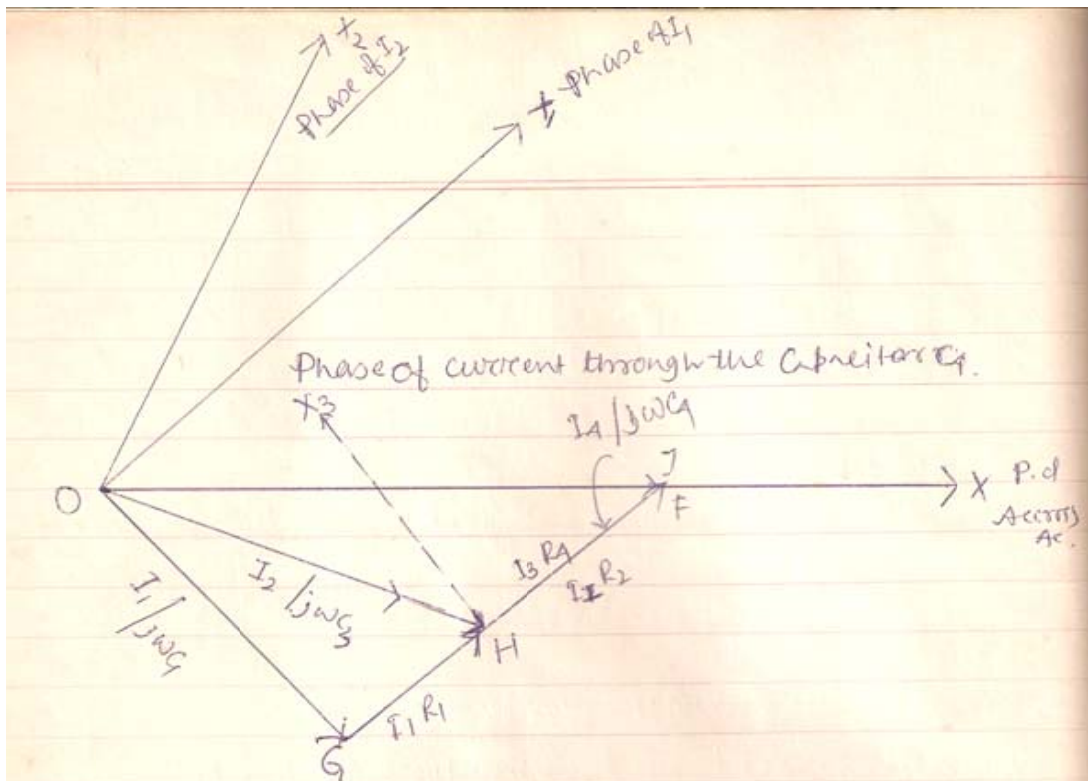 X2
Phase of I2
Phase of I1
Phase of current through the Capacitor C4.
X3
I4/jωC4
J
O
F
X P.d
Accross
Ac.
I3 R4
I1 R2
I2/jωC3
H
I1/jωC1
I1 R1
G